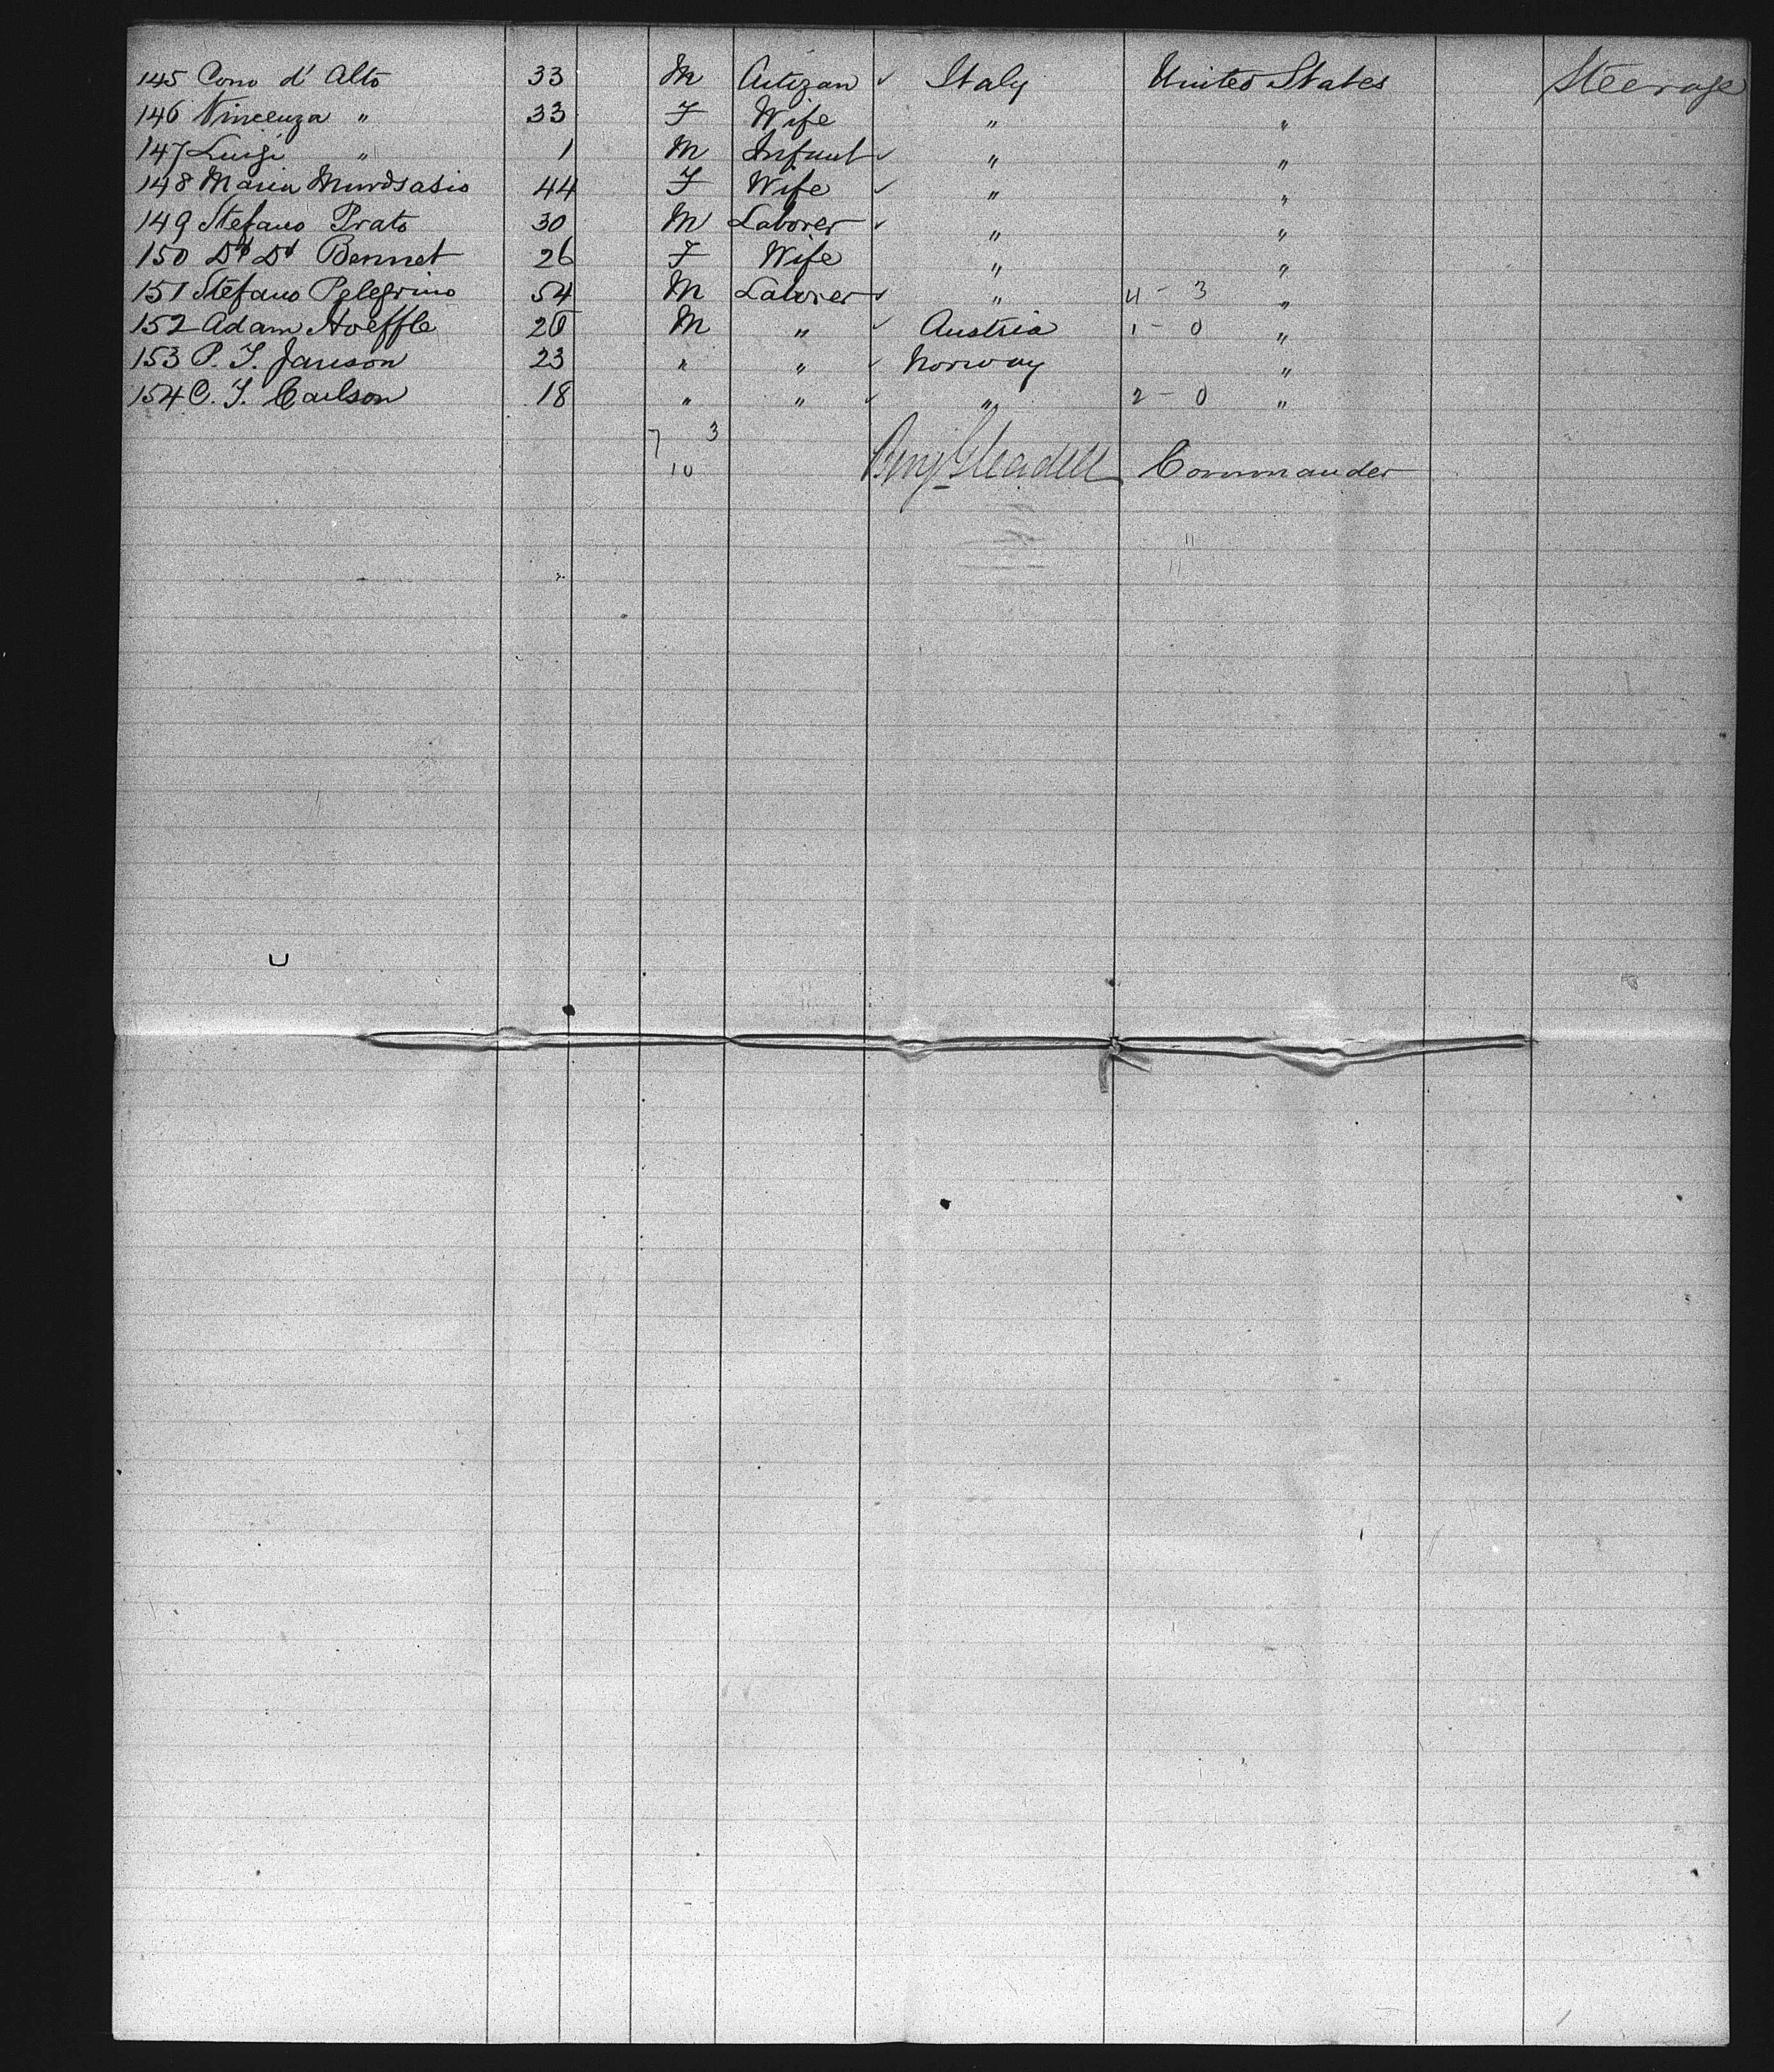 145 Cono d' Alto 33 M Artizan ✓ Italy United States Steerage
146 Vincenza " 33 F Wife " "
147 Luigi " 1 M Infant ✓ " "
148 Maria 44 F Wife ✓ " "
149 Stefano Prato 30 M Laborer ✓ " "
150 Bennet 26 F Wife " "
151 Stefano Pelegrino 54 M Laborer ✓ " 4 - 3 "
152 Adam Hoeffle M " ✓ Austria 1 - 0 "
153 P. J. Janson 23 " " ✓ Norway "
154 C. J. Carlson 18 " " ✓ " 2 - 0 "
7 3
10 Benj Gleadell Commander